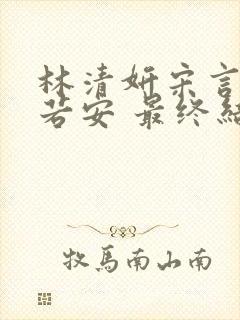 林清妍宋言
若安 最终结
牧馬南山南